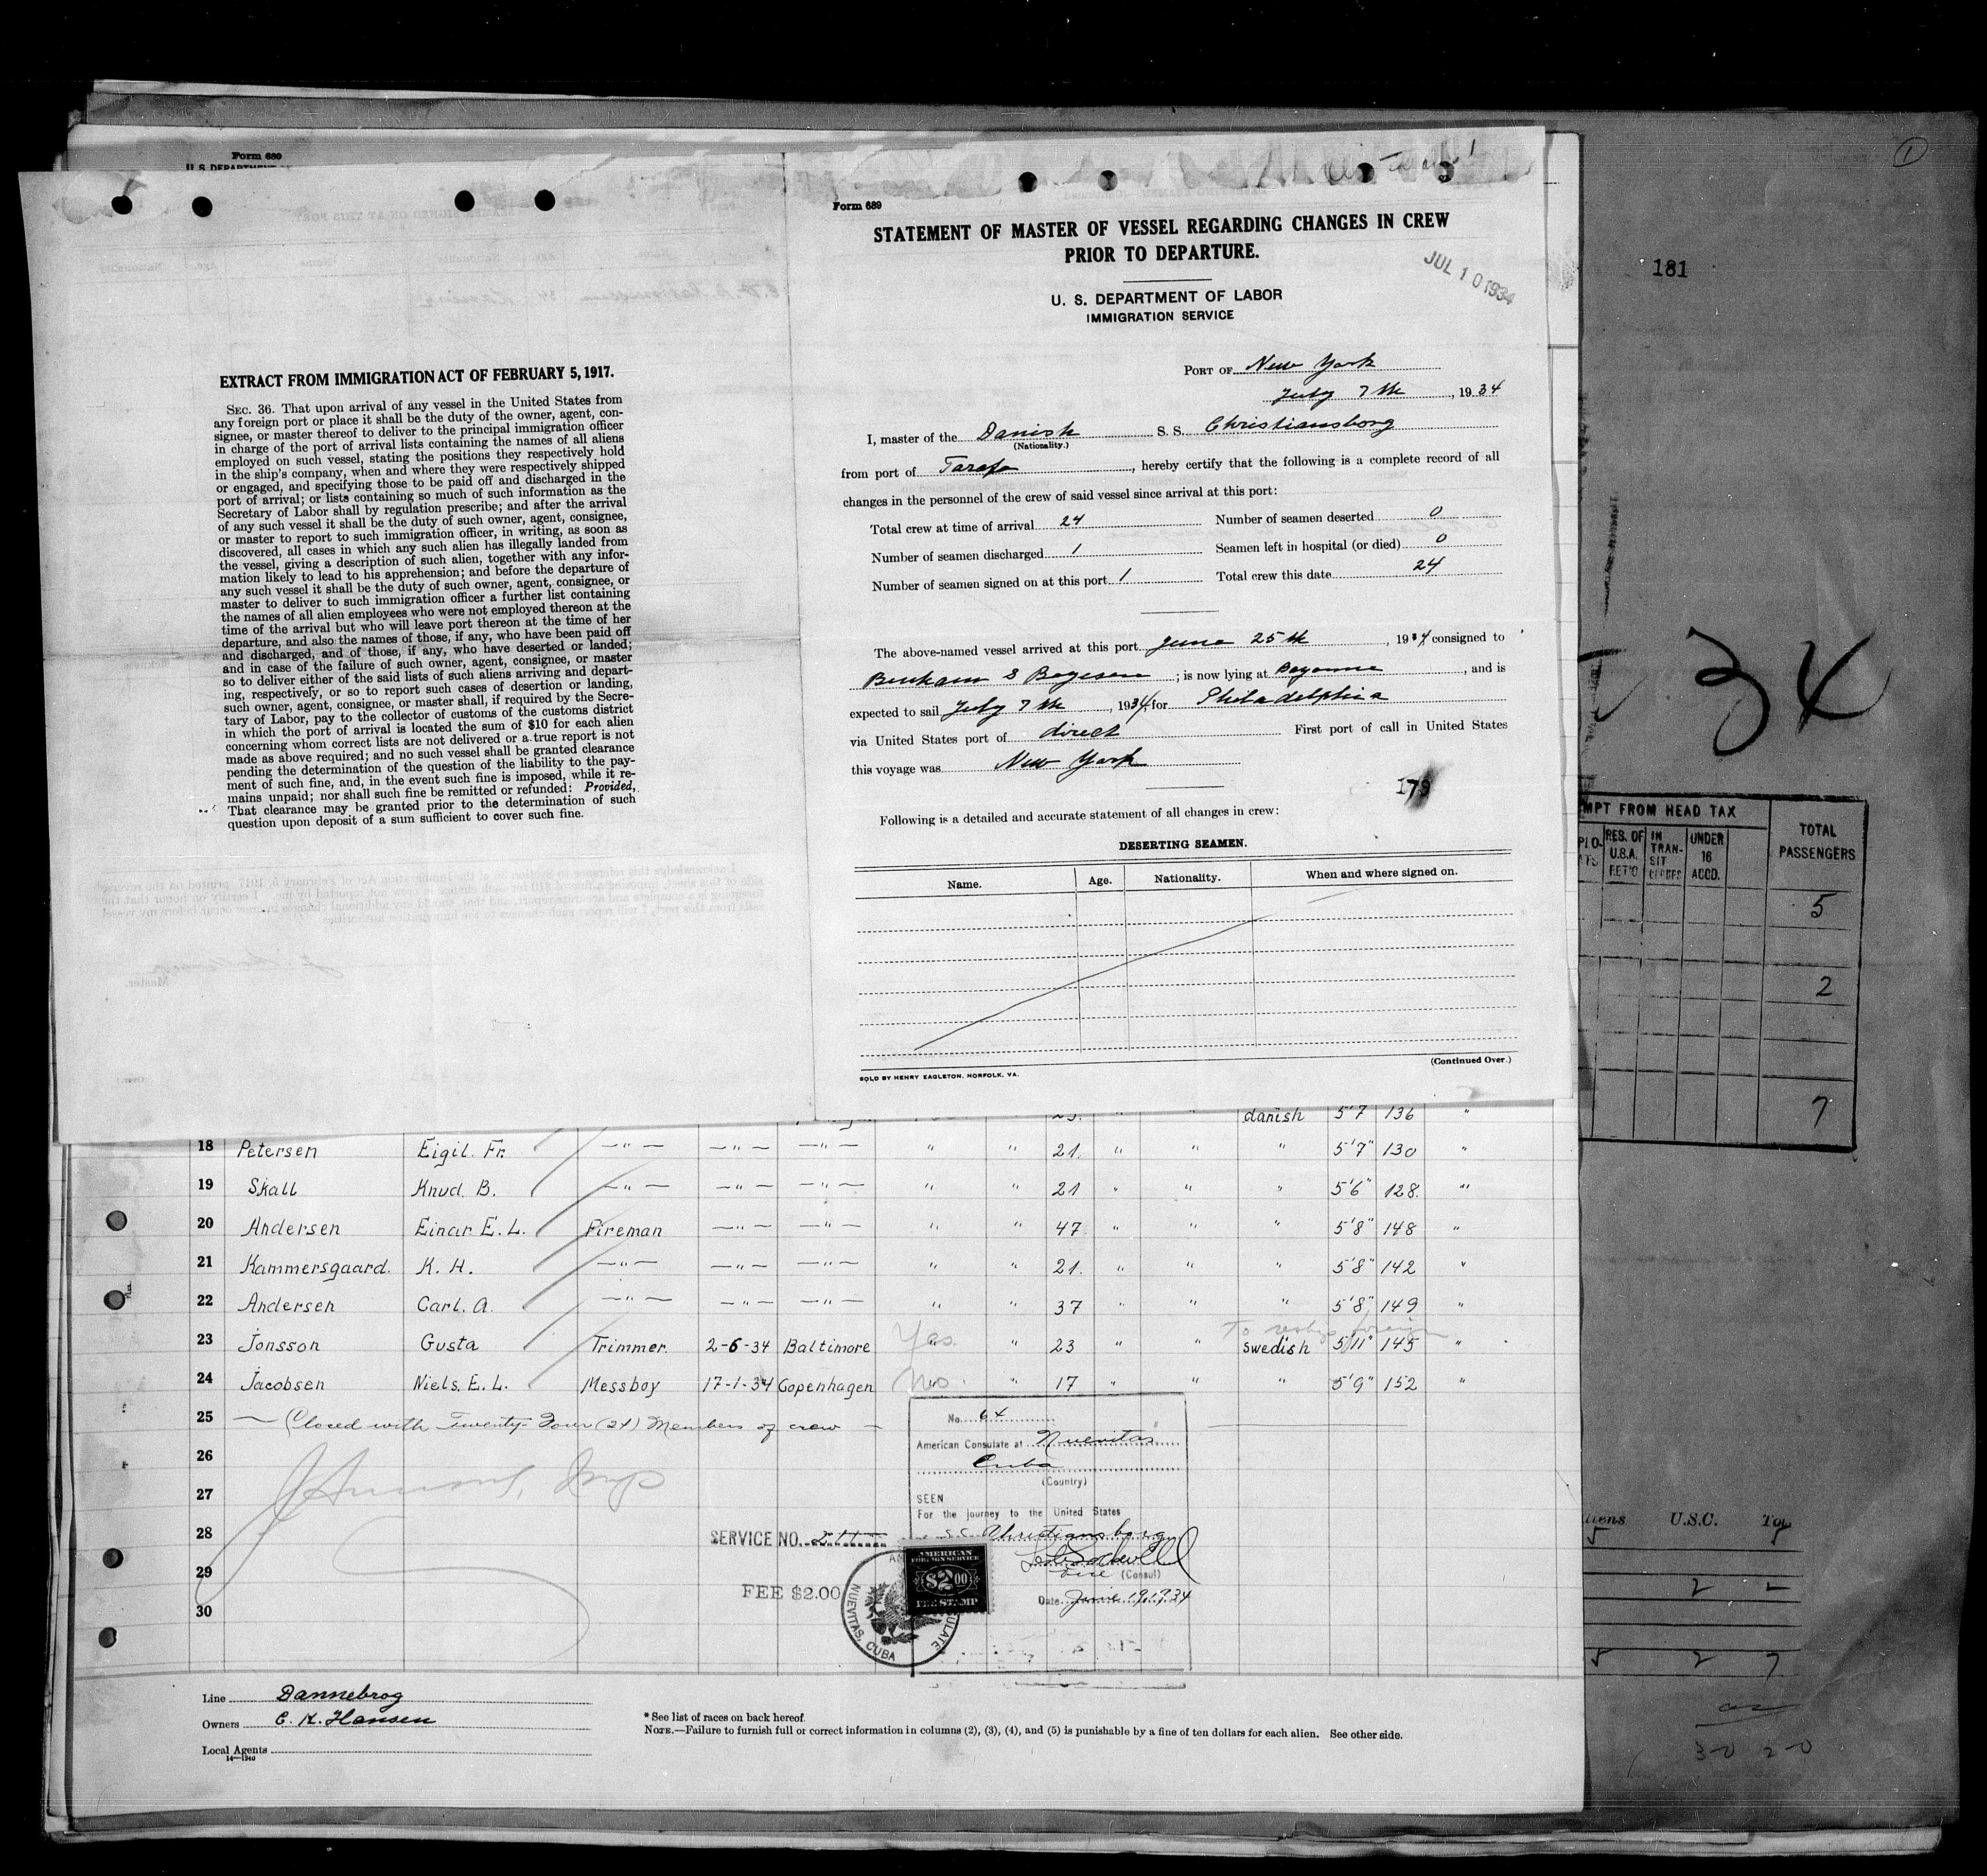 Form 689
U. S. DEPARTMENT
EXTRACT FROM IMMIGRATION ACT OF FEBRUARY 5, 1917.
SEC. 36. That upon arrival of any vessel in the United States from
any foreign port or place it shall be the duty of the owner, agent, con-
signee, or master thereof to deliver to the principal immigration officer
in charge of the port of arrival lists containing the names of all aliens
employed on such vessel, stating the positions they respectively hold
in the ship's company, when and where they were respectively shipped
or engaged, and specifying those to be paid off and discharged in the
port of arrival; or lists containing so much of such information as the
Secretary of Labor shall by regulation prescribe; and after the arrival
of any such vessel it shall be the duty of such owner, agent, consignee,
or master to report to such immigration officer, in writing, as soon as
discovered, all cases in which any such alien has illegally landed from
the vessel, giving a description of such alien, together with any infor-
mation likely to lead to his apprehension; and before the departure of
any such vessel it shall be the duty of such owner, agent, consignee, or
master to deliver to such immigration officer a further list containing
the names of all alien employees who were not employed thereon at the
time of the arrival but who will leave port thereon at the time of her
departure, and also the names of those, if any, who have been paid off
and discharged, and of those, if any, who have deserted or landed;
and in case of the failure of such owner, agent, consignee, or master
so to deliver either of the said lists of such aliens arriving and depart-
ing, respectively, or so to report such cases of desertion or landing,
such owner, agent, consignee, or master shall, if required by the Secre-
tary of Labor, pay to the collector of customs of the customs district
in which the port of arrival is located the sum of $10 for each alien
concerning whom correct lists are not delivered or a true report is not
made as above required; and no such vessel shall be granted clearance
pending the determination of the question of the liability to the pay-
ment of such fine, and, in the event such fine is imposed, while it re-
mains unpaid; nor shall such fine be remitted or refunded: Provided,
That clearance may be granted prior to the determination of such
question upon deposit of a sum sufficient to cover such fine.
Form 689
STATEMENT OF MASTER OF VESSEL REGARDING CHANGES IN CREW
PRIOR TO DEPARTURE.
JUL 10 1934
U. S. DEPARTMENT OF LABOR
IMMIGRATION SERVICE
PORT OF New York
July 7th, 1934
I, master of the Danish S. S. Christiansborg
(Nationality.)
from port of Tarafa, hereby certify that the following is a complete record of all
changes in the personnel of the crew of said vessel since arrival at this port:
Total crew at time of arrival 24 Number of seamen deserted 0
Number of seamen discharged 1 Seamen left in hospital (or died) 0
Number of seamen signed on at this port 1 Total crew this date 24
The above-named vessel arrived at this port June 25th, 1934, consigned to
Benham & Boyesen; is now lying at Bayonne, and is
expected to sail July 7th, 1934, for Philadelphia
via United States port of direct First port of call in United States
this voyage was New York
179
Following is a detailed and accurate statement of all changes in crew:
DESERTING SEAMEN.
Name. Age. Nationality. When and where signed on.
(Continued Over.)
SOLD BY HENRY EAGLETON, NORFOLK, VA.
danish 5'7 136 "
18 Petersen Eigil. Fr. —"— —"— —"— " " 21. " " " 5'7" 130 "
19 Skall Knud. B. —"— —"— —"— " " 21 " " " 5'6" 128. "
20 Andersen Einar E. L. Fireman —"— —"— " " 47 " " " 5'8" 148 "
21 Kammersgaard. K. H. —"— —"— —"— " " 21. " " " 5'8" 142 "
22 Andersen Carl. A. —"— —"— —"— " " 37 " " " 5'8" 149 "
To reship foreign
23 Jonsson Gusta Trimmer. 2-6-34 Baltimore Yes " 23 " " swedish 5'11" 145 "
24 Jacobsen Niels. E. L. Messboy 17-1-34 Copenhagen No. " 17 " " " 5'9" 152 "
25 — (Closed with Twenty-Four (24) Members of crew —
26
27
28
29
30
No. 64
American Consulate at Nuevitas
Cuba
(Country)
SEEN
For the journey to the United States
S.S. Christiansborg
Vice (Consul)
Date June 19, 1934
SERVICE NO. 211
FEE $2.00
AMERICAN
FOREIGN SERVICE
$2.00
FEE STAMP
NUEVITAS, CUBA
Line Dannebrog
Owners C. K. Hansen
Local Agents
14—1240
* See list of races on back hereof.
NOTE.—Failure to furnish full or correct information in columns (2), (3), (4), and (5) is punishable by a fine of ten dollars for each alien. See other side.
1
181
34
MPT FROM HEAD TAX
RES. OF U.S.A. RET'G
IN TRAN-SIT
UNDER 16 ACCD.
TOTAL PASSENGERS
5
2
7
liens U.S.C. Tot
5
2
5 2 7
30 20